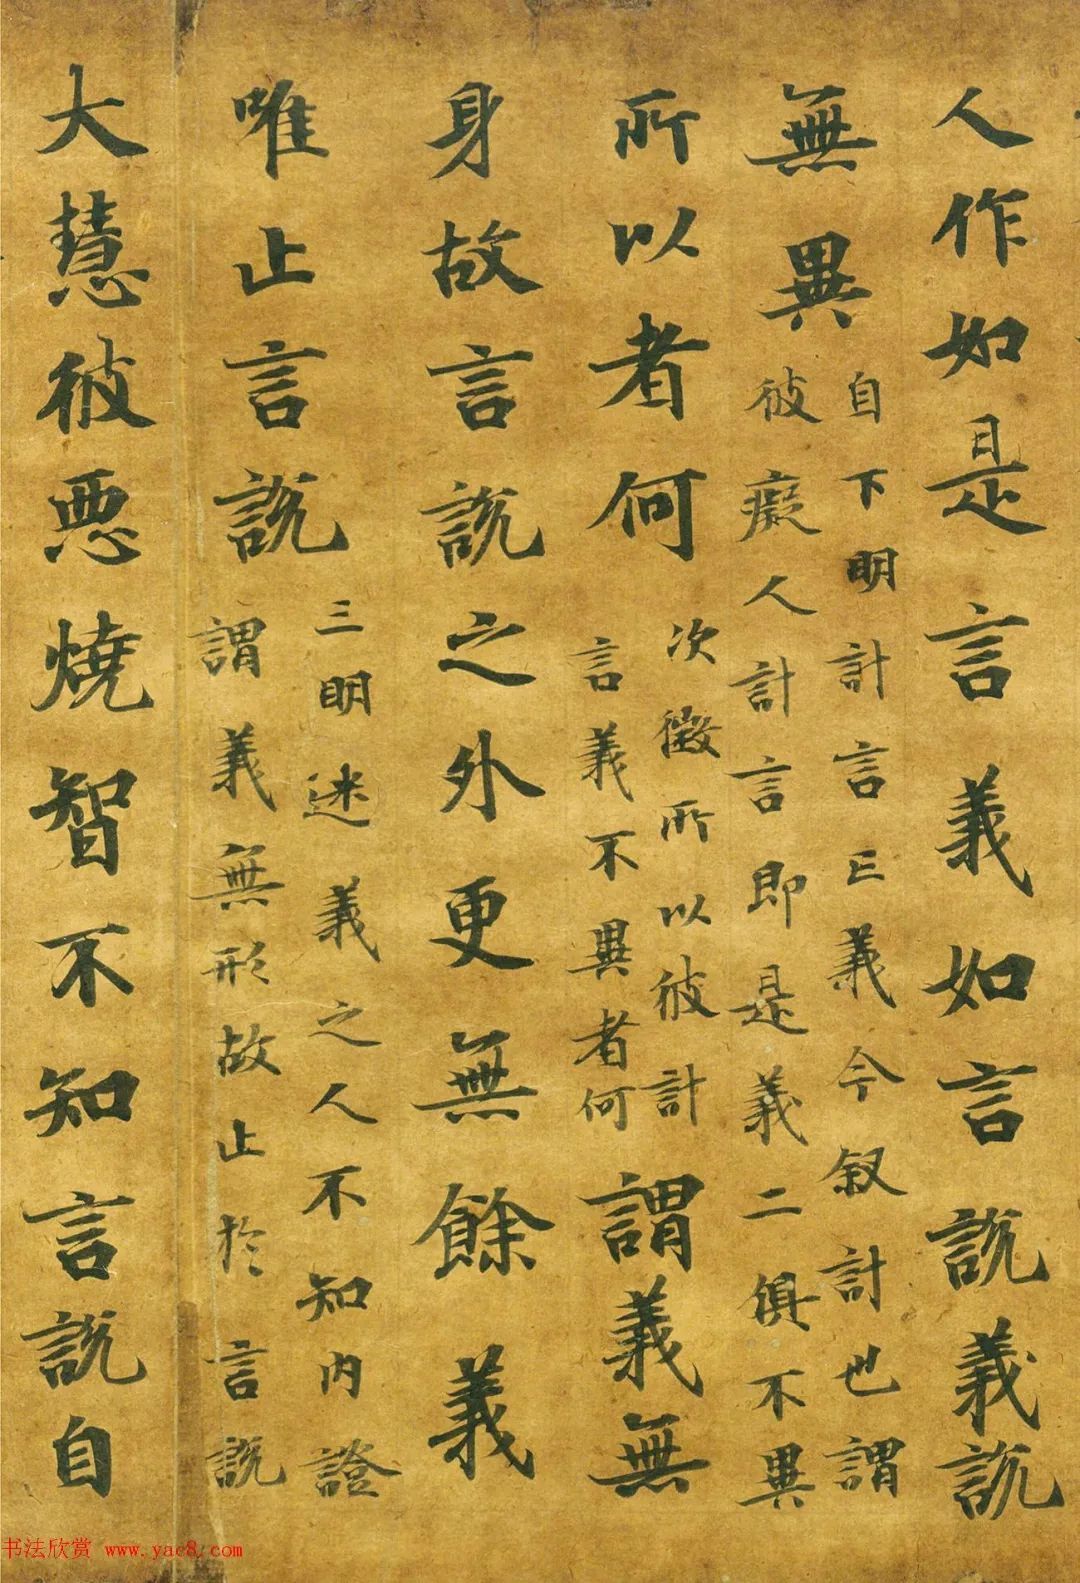 人作如是言義如言說義說
無異自下明計言亡義今叙計也謂彼癡人計言即是義二俱不異
所以者何次徵所以彼計言義不異者何謂義無
身故言說之外更無餘義
唯止言說三明迷義之人不知內證謂義無形故止於言說
大慧彼悪燒智不知言說自
书法欣赏 www.yac8.com